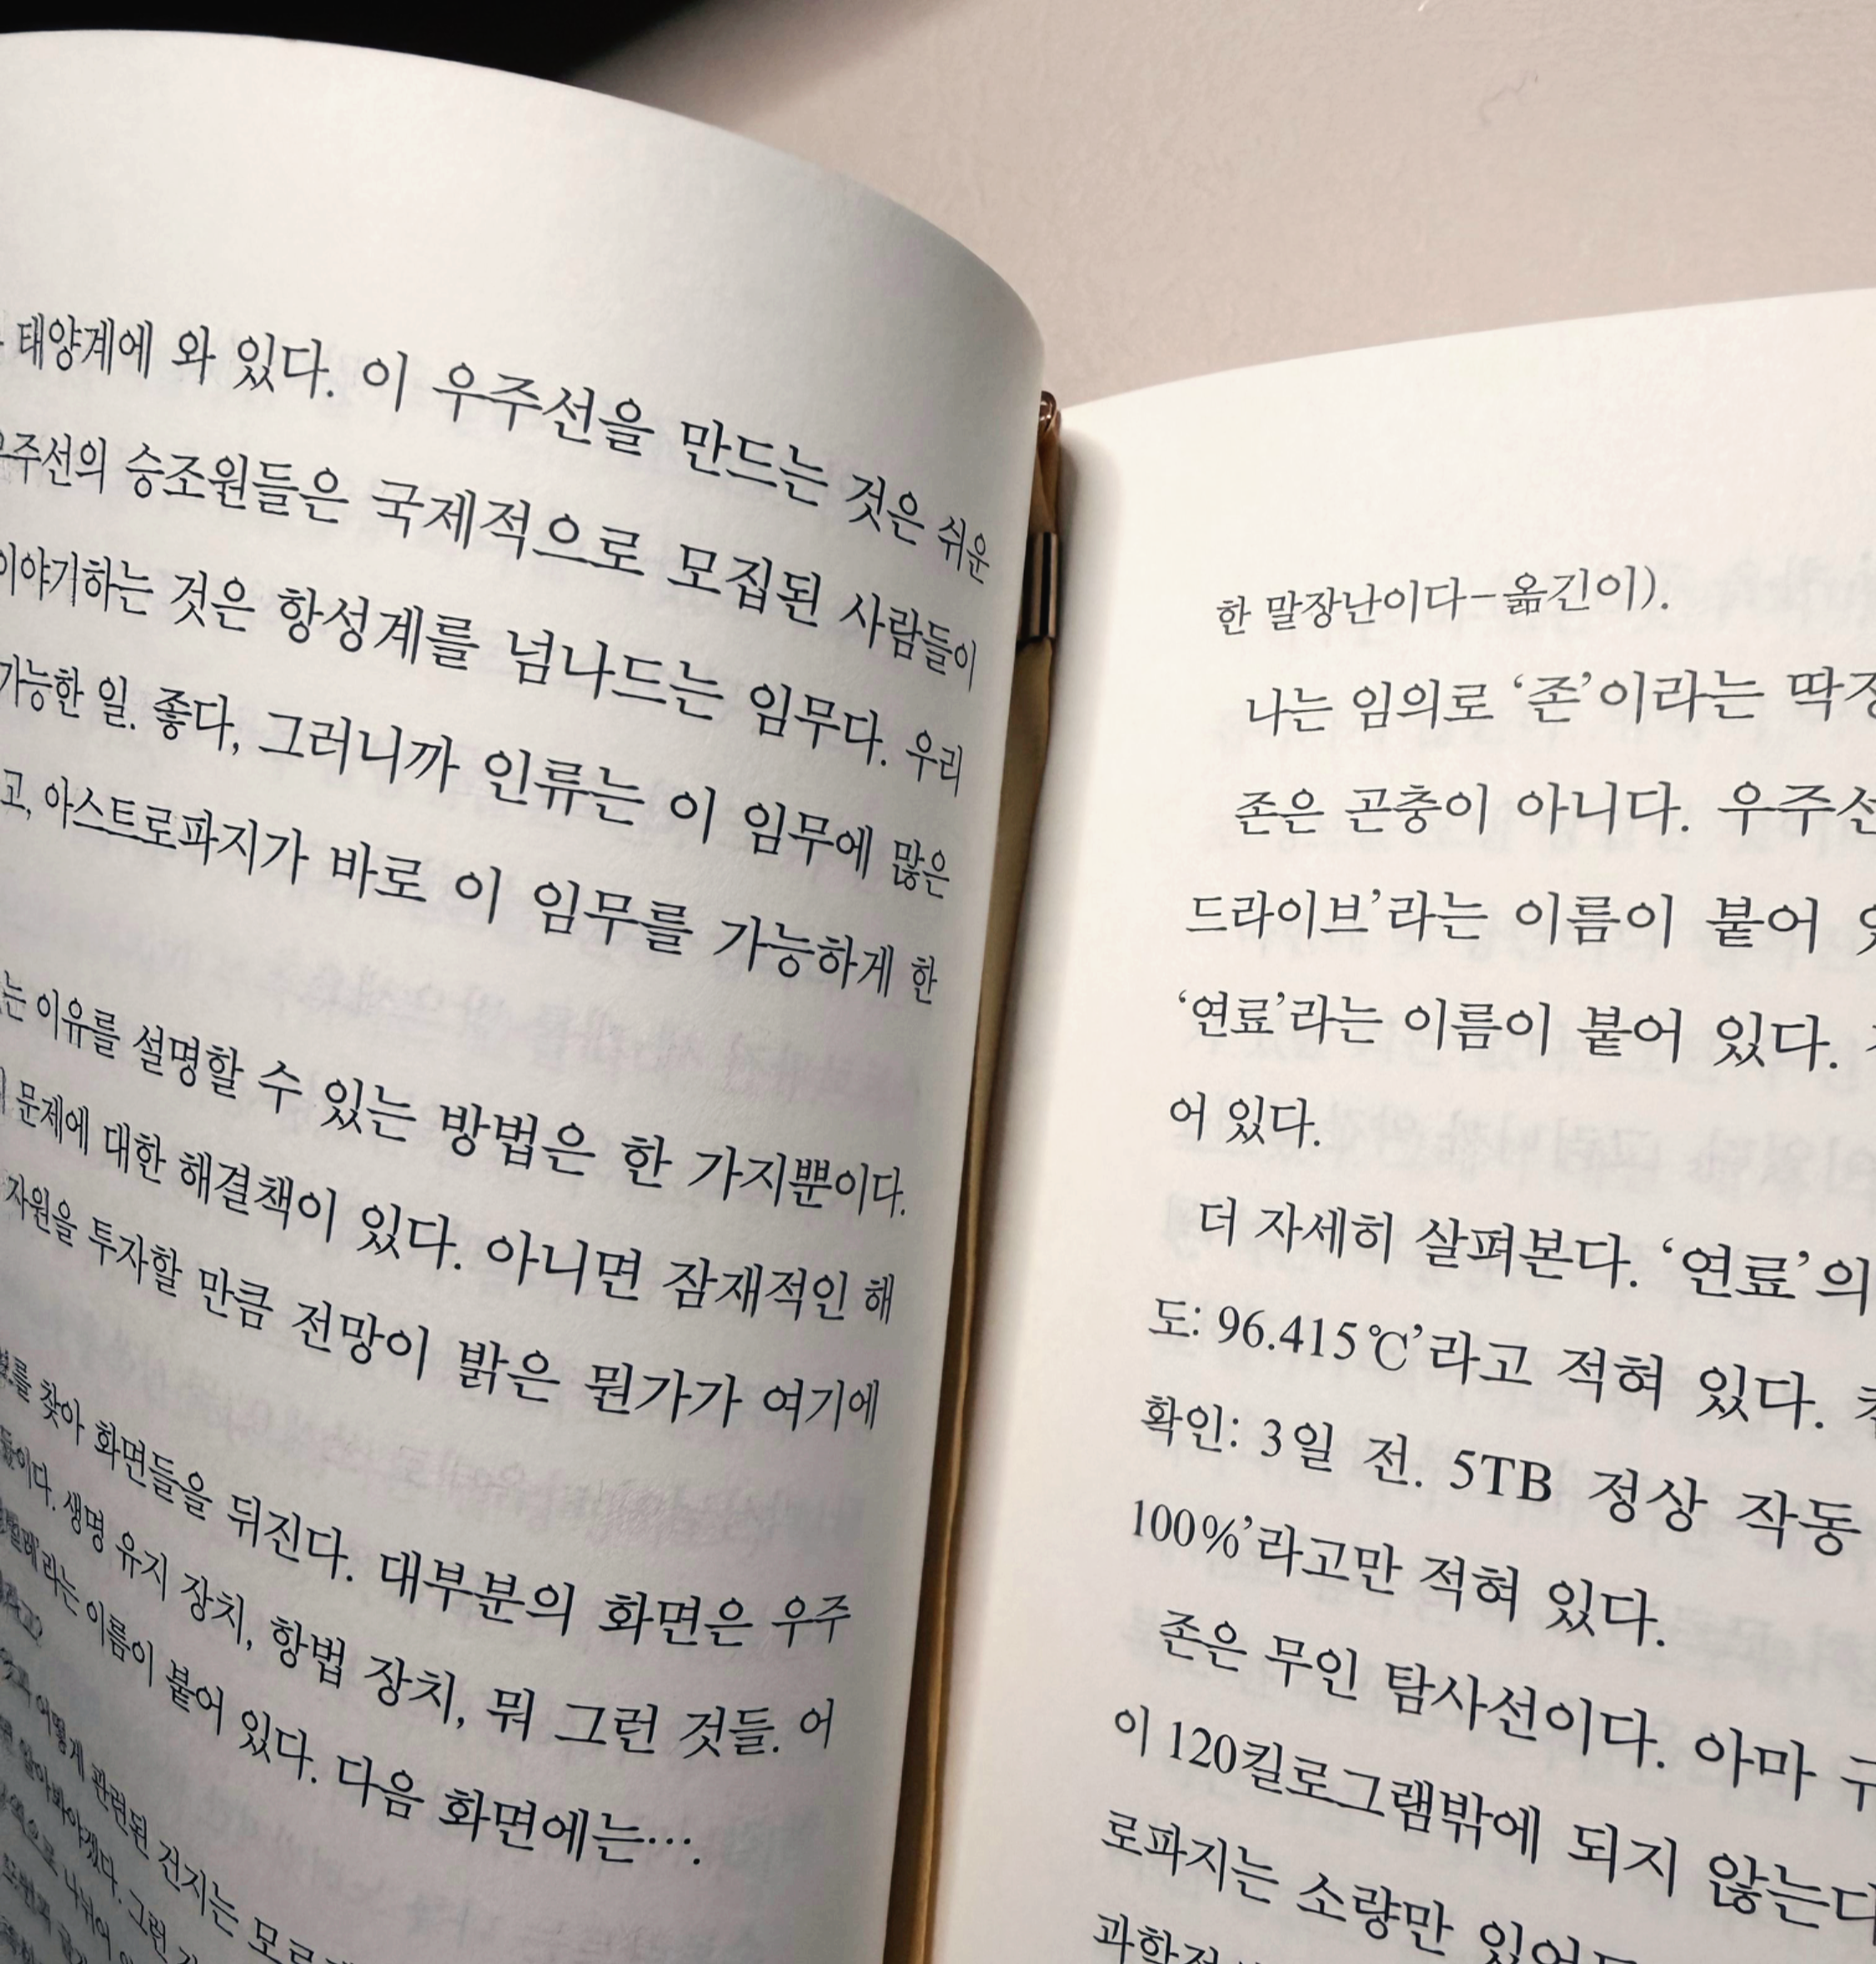 태양계에 와 있다. 이 우주선을 만드는 것은 쉬운
우주선의 승조원들은 국제적으로 모집된 사람들이
이야기하는 것은 항성계를 넘나드는 임무다. 우리
가능한 일. 좋다, 그러니까 인류는 이 임무에 많은
고, 아스트로파지가 바로 이 임무를 가능하게 한
는 이유를 설명할 수 있는 방법은 한 가지뿐이다.
문제에 대한 해결책이 있다. 아니면 잠재적인 해
자원을 투자할 만큼 전망이 밝은 뭔가가 여기에
를 찾아 화면들을 뒤진다. 대부분의 화면은 우주
들이다. 생명 유지 장치, 항법 장치, 뭐 그런 것들. 어
라는 이름이 붙어 있다. 다음 화면에는….
어떻게 관련된 건지는
알아봐야겠다. 그런
나뉘어
한 말장난이다-옮긴이).
나는 임의로 ‘존’이라는
존은 곤충이 아니다.
드라이브’라는 이름이 붙어
‘연료’라는 이름이 붙어 있다.
어 있다.
더 자세히 살펴본다. ‘연료’의
도: 96.415℃’라고 적혀 있다.
확인: 3일 전. 5TB 정상 작동
100%’라고만 적혀 있다.
존은 무인 탐사선이다. 아마
이 120킬로그램밖에 되지 않는다
로파지는 소량만